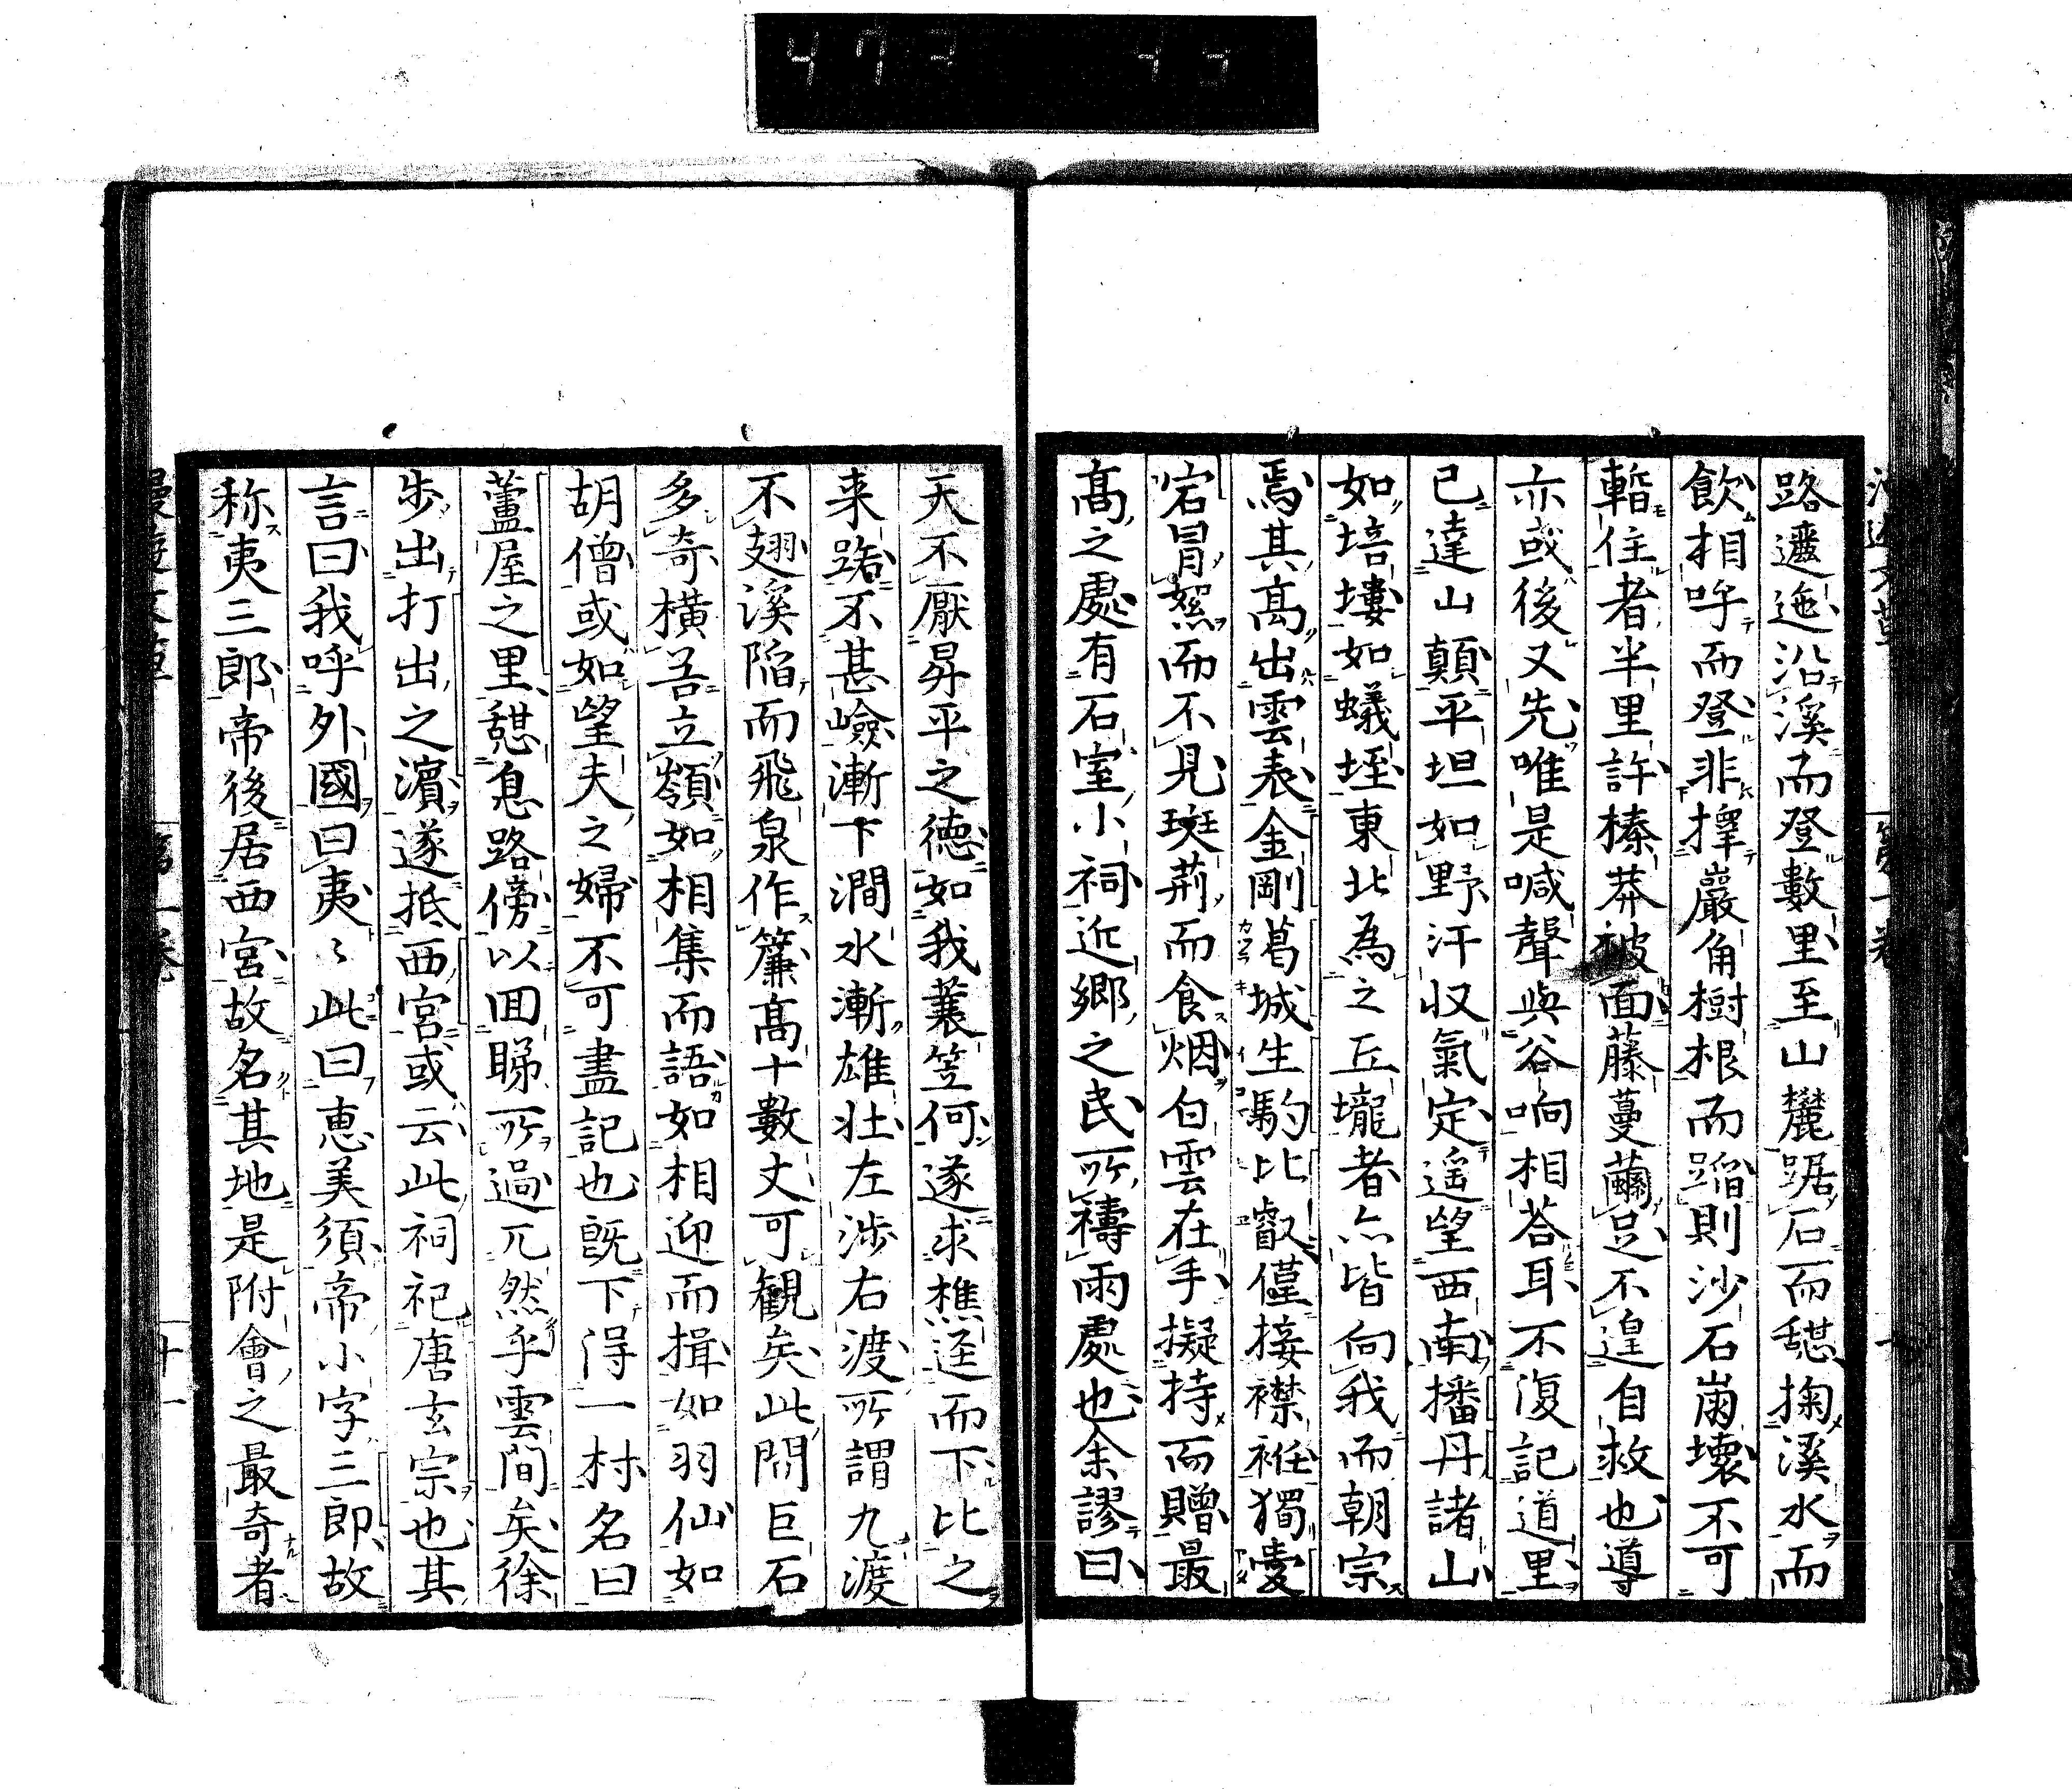 路邐迤沿溪而登數里至山麓踞石而憩掬溪水而
飲相呼而登非擇巖角樹根而蹈則沙石崩壞不可
暫住者半里許榛莽被面藤蔓繭足不遑自救也導
亦或後又先唯是喊聲與谷响相荅耳不復記道里
已達山顛平坦如野汗収氣定遥望西南播丹諸山
如培塿如蟻垤東北為之丘壠者亦皆向我而朝宗
焉其高出雲表金剛葛城生駒比叡僅接襟袵獨愛
宕冒絮而不見班荊而食烟白雲在手擬持而贈最
高之處有石室小祠近郷之民所禱雨處也余謬曰
天不厭昇平之德如我蓑笠何遂求樵逕而下比之
来路不甚嶮漸下澗水漸雄壮左渉右渡所謂九渡
不翅溪陥而飛泉作簾高十數丈可観矣此間巨石
多奇横峇立嶺如相集而語如相迎而揖如羽仙如
胡僧或如望夫之婦不可盡記也既下得一村名曰
蘆屋之里憩息路傍以囬睇所過兀然乎雲間矣徐
歩出打出之濱遂抵西宮或云此祠祀唐玄宗也其
言曰我呼外國曰夷〻此曰恵美須帝小字三郎故
称夷三郎帝後居西宮故名其地是附會之最奇者
十一